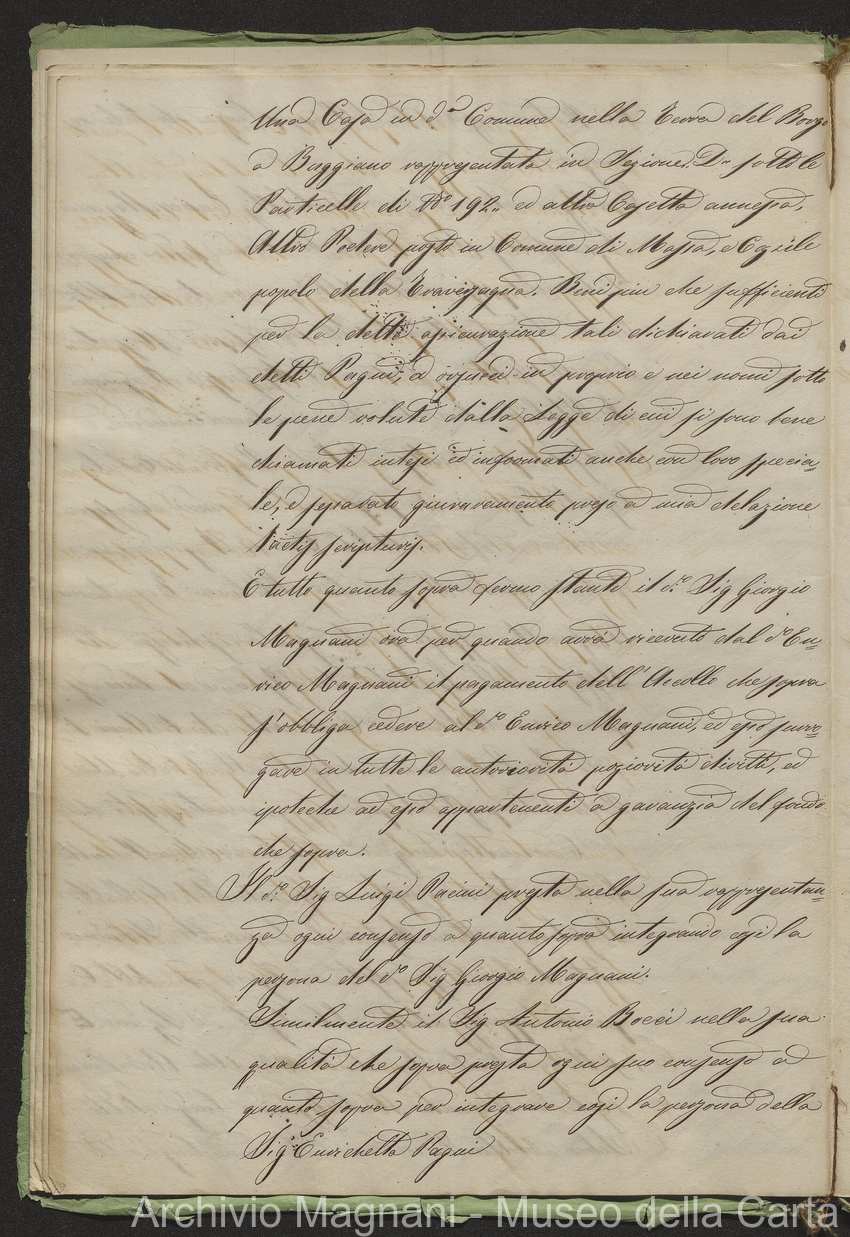 Una Casa in d.a Comune nella Terra del Borgo
a Buggiano rappresentata in Sezione. D" sotto le
Particelle di N.o 192,, ed altra Casetta annessa,
Altro Podere posto in Comune di Massa, e Cozzile
popolo della Traversagna. Beni più che sufficienti
per la detta assicurazione tali dichiarati dai
detti Pagni, ed in proprio e nei nomi sotto
le pene volute dalla Legge di cui si sono bene
chiamati intesi ed informati anche con loro specia=
le, e separato giuramento preso a mia delazione
tactis scripturis.
E tutto quanto sopra fermo stante il d.o Sig Giorgio
Magnani ora per quando avrà ricevuto dal d.o En=
rico Magnani il pagamento dell'Accollo che sopra
s'obbliga cedere al d.o Enrico Magnani, ed esso surro=
gare in tutte le anteriorità poziorità diritti, ed
ipoteche ad esso appartenenti a garanzia del fondo
che sopra.
Il d.o Sig Luigi Pacini presta nella sua rappresentan=
za ogni consenso a quanto sopra integrando così la
persona del d.o Sig Giorgio Magnani.
Similmente il Sig Antonio Bocci nella sua
qualità che sopra presta ogni suo consenso a
quanto sopra per integrare così la persona della
Sig.a Enrichetta Pagni
Archivio Magnani - Museo della Carta